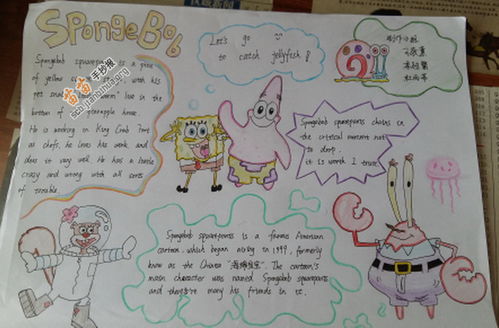 SPongeBob
Spongebob squarepants is a piece
of yellow
with his
pet snail
live in the
bottom of
pineapple house.
He is working in King Crab Fort
as chef, he loves his work and
does it very well. He has a little
crazy and
with all sorts
of trouble.
苗苗手抄报
Let's go
to catch jellyfish!
制作小组
李超贤
Spongebob squarepants chains in
the critical moment not
to drop,
it is worth I trust.
Spongebob squarepants is a famous American
cartoon, which began airing in 1999, formerly
know as the Chinese "海绵宝宝". The cartoon's
main character was named Spongebob squarepants
and they're many his friends in it.